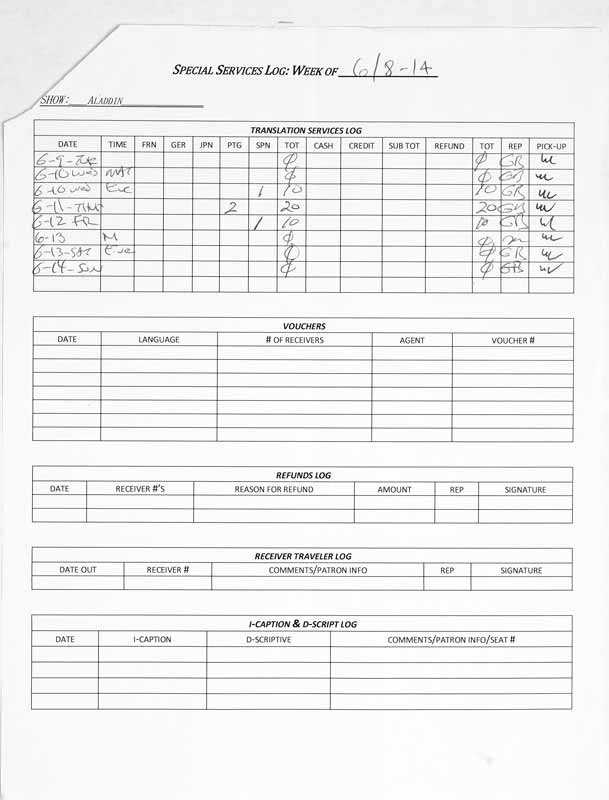 SPECIAL SERVICES LOG: WEEK OF 6/8-14
SHOW: ALADDIN
TRANSLATION SERVICES LOG
DATE TIME FRN GER JPN PTG SPN TOT CASH CREDIT SUB TOT REFUND TOT REP PICK-UP
6-9-TUE Ø Ø GB
6-10 WED MAT Ø Ø GB
6-10 WED Eve 1 10 10 GB
6-11-THU 2 20 20 GB
6-12 FR 1 10 10 GB
6-13 M Ø Ø
6-13-SAT Eve Ø Ø GB
6-14-SUN Ø Ø GB
VOUCHERS
DATE LANGUAGE # OF RECEIVERS AGENT VOUCHER #
REFUNDS LOG
DATE RECEIVER #'S REASON FOR REFUND AMOUNT REP SIGNATURE
RECEIVER TRAVELER LOG
DATE OUT RECEIVER # COMMENTS/PATRON INFO REP SIGNATURE
I-CAPTION & D-SCRIPT LOG
DATE I-CAPTION D-SCRIPTIVE COMMENTS/PATRON INFO/SEAT #